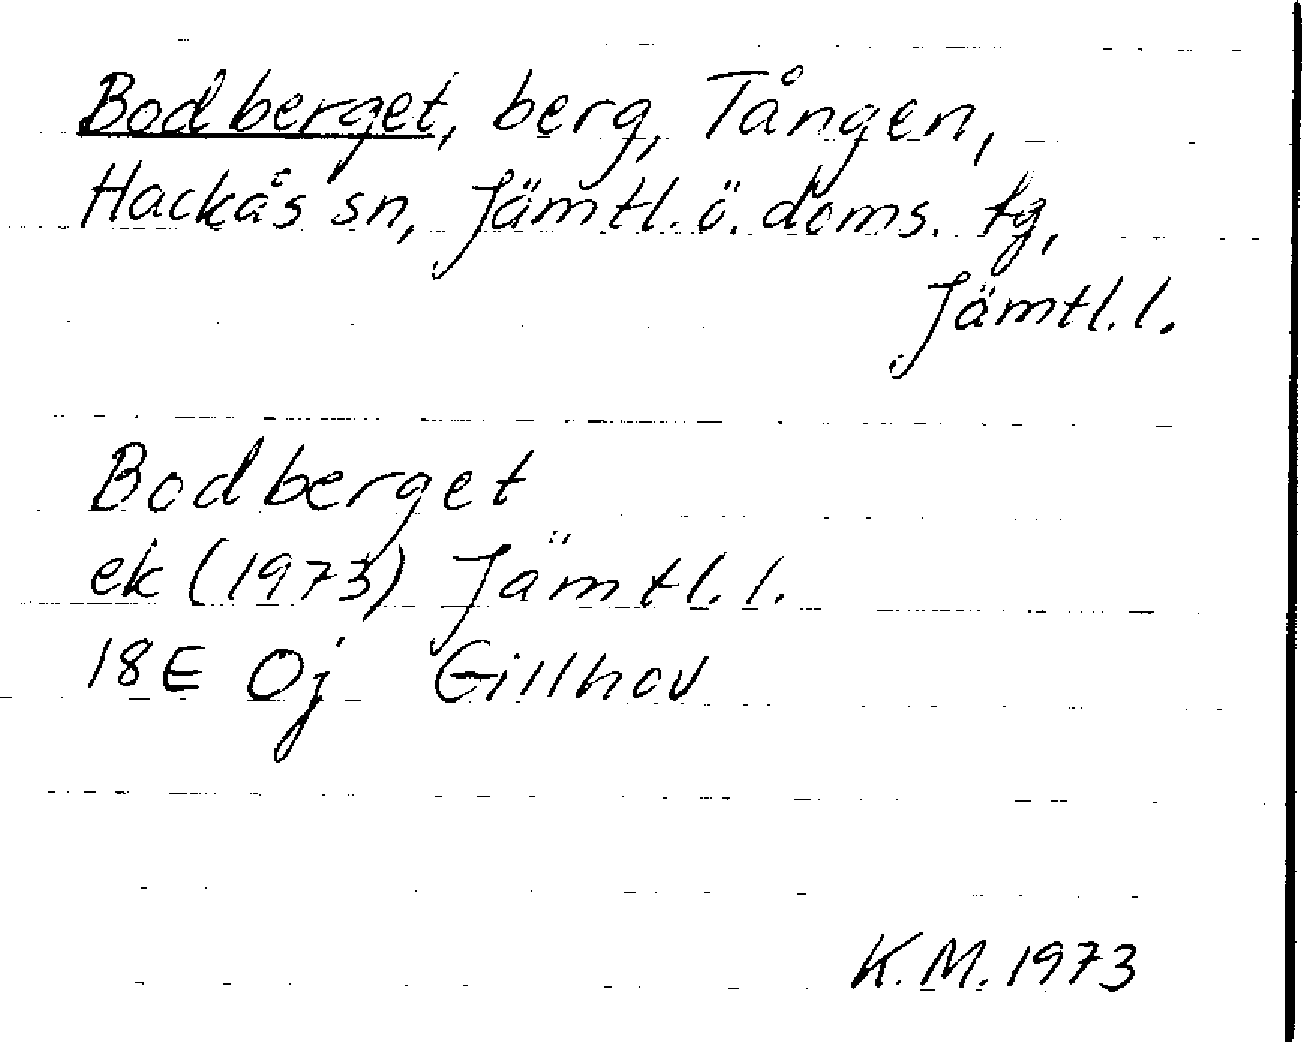 Bodberget, berg, Tången,
Hackås sn, Jämtl. ö. doms. tg,
Jämtl. l.
Bodberget
ek (1973) Jämtl. l.
18E 0j Gillhov
K.M. 1973